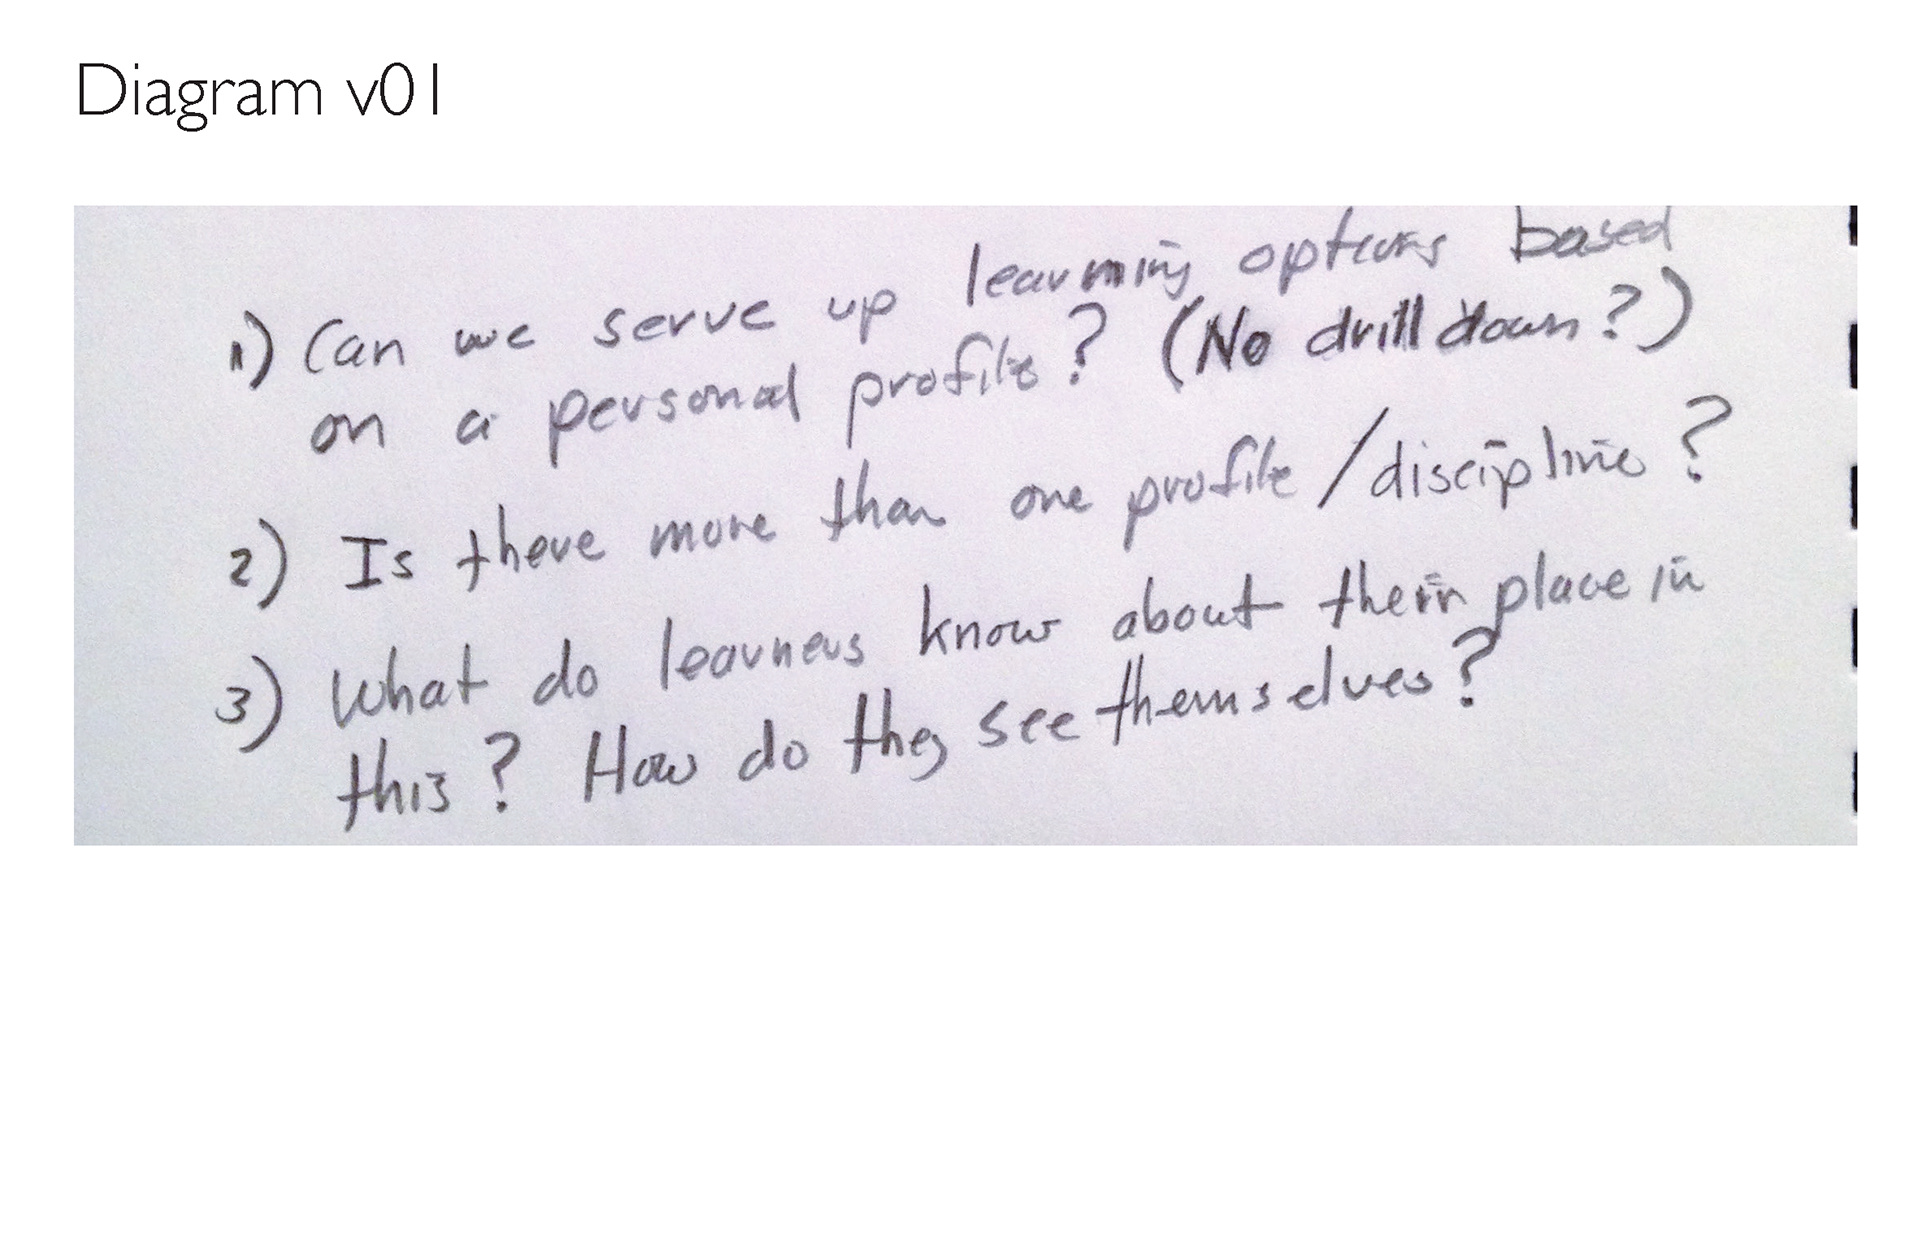 Diagram v01
1) Can we serve up learning options based
on a personal profile? (No drill down?)
2) Is there more than one profile/discipline?
3) What do learners know about their place in
this? How do they see themselves?